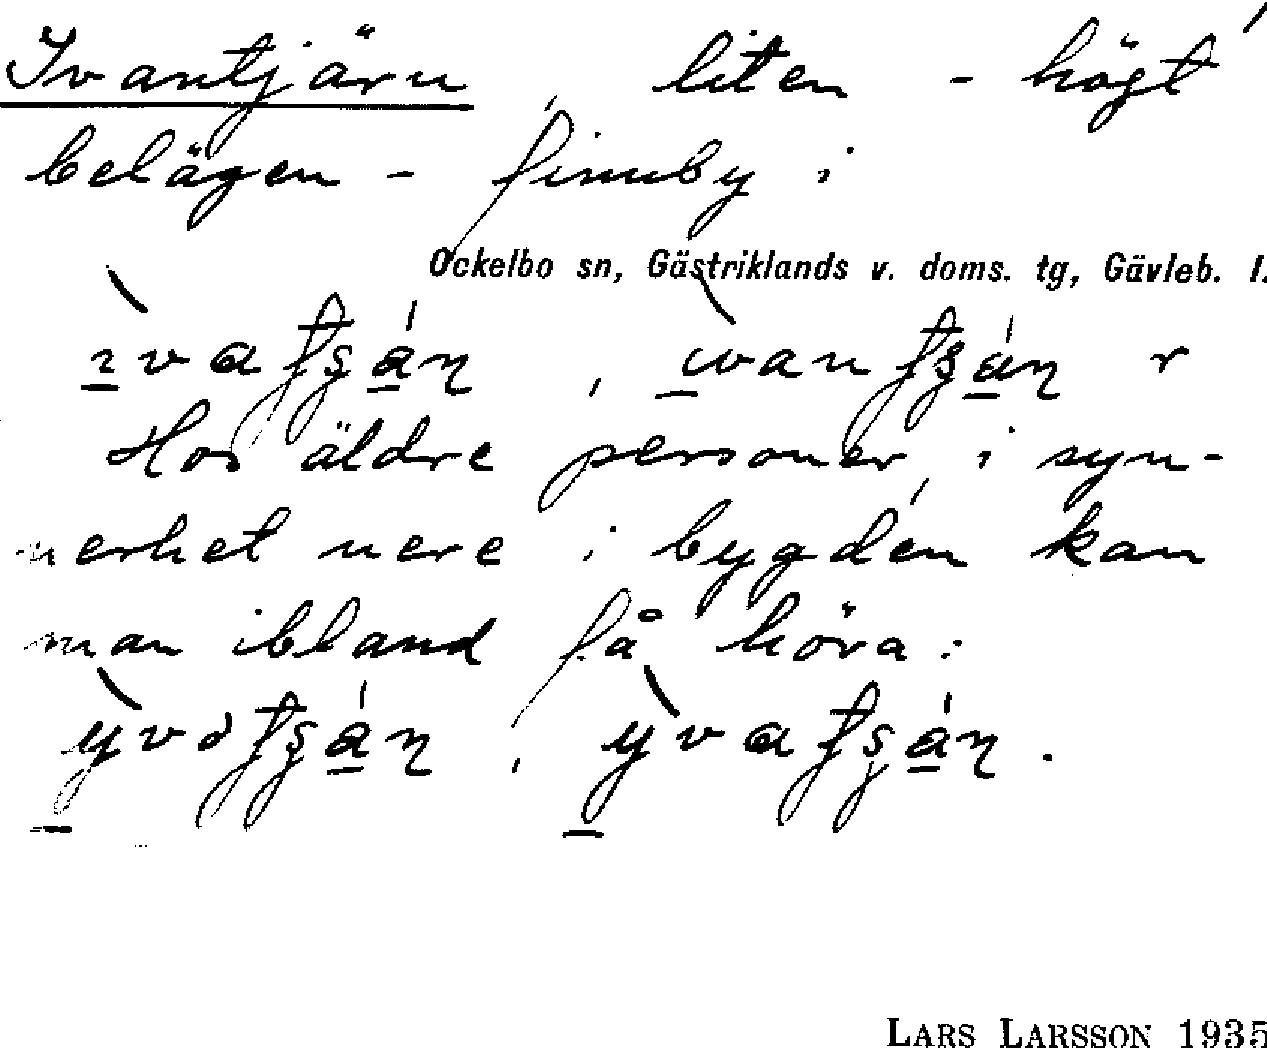 Ivantjärn, liten - högt
belägen - finnby i
Ockelbo sn, Gästriklands v. doms. tg, Gävleb. l.
Hos äldre personer, i syn-
nerhet nere i bygden kan
man ibland få höra:
LARS LARSSON 1935